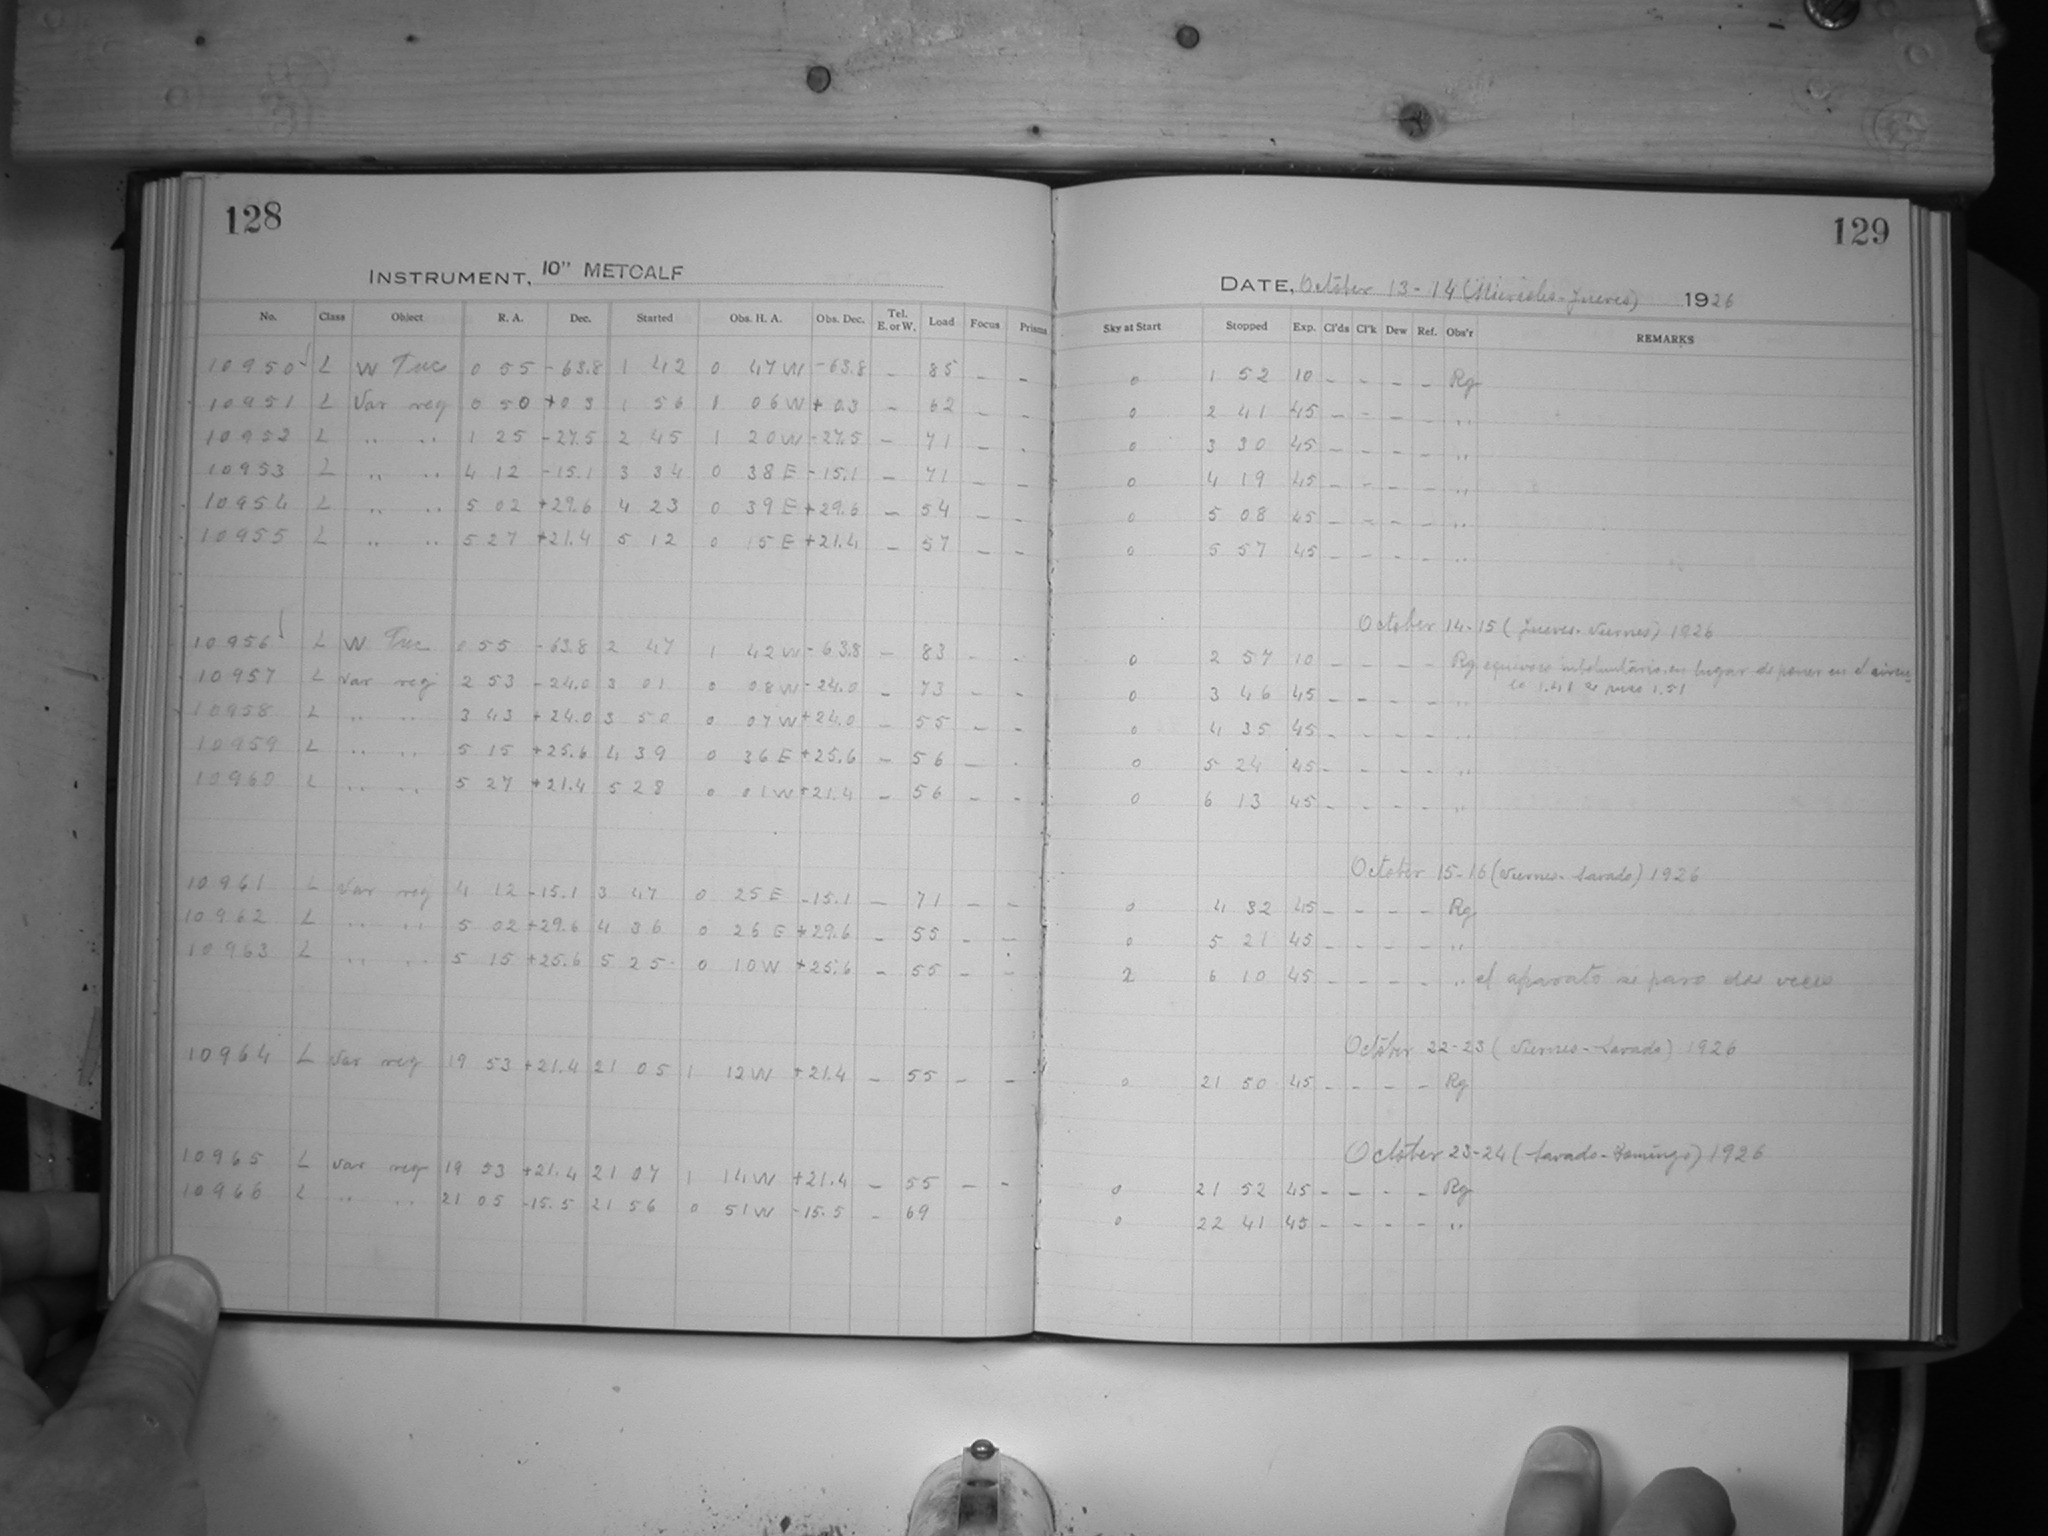 128
INSTRUMENT, 10" METCALF
No. Class Object R. A. Dec. Started Obs. H. A. Obs. Dec. Tel. E. or W. Load Focus Prisms
10950 L W Tuc 0 55 -63.8 1 42 0 47 W -63.8 - 85 - -
10951 L Var reg 0 50 +0 3 1 56 1 06 W + 0.3 - 62 - -
10952 L .. .. 1 25 -27.5 2 45 1 20 W -27.5 - 71 - .
10953 L .. .. 4 12 -15.1 3 34 0 38 E -15.1 - 71 - -
10954 L .. .. 5 02 +29.6 4 23 0 39 E +29.6 - 54 - -
10955 L .. .. 5 27 +21.4 5 12 0 15 E +21.4 - 57 - -
10956 L W Tuc 0 55 -63.8 2 47 1 42 W -63.8 - 83 - -
10957 L Var reg 2 53 -24.0 3 01 0 08 W -24.0 - 73 - -
10958 L .. .. 3 43 +24.0 3 50 0 07 W +24.0 - 55 - -
10959 L .. .. 5 15 +25.6 4 39 0 36 E +25.6 - 56 - .
10960 L .. .. 5 27 +21.4 5 28 0 01 W +21.4 - 56 - -
10961 L Var reg 4 12 -15.1 3 47 0 25 E -15.1 - 71 - -
10962 L .. .. 5 02 +29.6 4 36 0 26 E +29.6 - 55 - -
10963 L .. .. 5 15 +25.6 5 25 0 10 W +25.6 - 55 - -
10964 L Var reg 19 53 +21.4 21 05 1 12 W +21.4 - 55 - -
10965 L Var reg 19 53 +21.4 21 07 1 14 W +21.4 - 55 - -
10966 L .. .. 21 05 -15.5 21 56 0 51 W -15.5 - 69
129
DATE, October 13-14 (Miercoles-Jueves) 1926
Sky at Start Stopped Exp. Cl'ds Cl'k Dew Ref. Obs'r REMARKS
0 1 52 10 - - - - Rg
0 2 41 45 - - - - ..
0 3 30 45 - - - - ..
0 4 19 45 - - - - ..
0 5 08 45 - - - - ..
0 5 57 45 - - - - ..
October 14-15 (Jueves-Viernes) 1926
0 2 57 10 - - - - Rg equivoco involuntario en lugar de poner en el circu-
lo 1.41 se puso 1.51
0 3 46 45 - - - - ..
0 4 35 45 - - - - ..
0 5 24 45 - - - - ..
0 6 13 45 - - - - ..
October 15-16 (Viernes-Savado) 1926
0 4 32 45 - - - - Rg
0 5 21 45 - - - - ..
2 6 10 45 - - - - .. el aparato se paro dos veces
October 22-23 (Viernes-Savado) 1926
0 21 50 45 - - - - Rg
October 23-24 (Savado-Domingo) 1926
0 21 52 45 - - - - Rg
0 22 41 45 - - - - ..